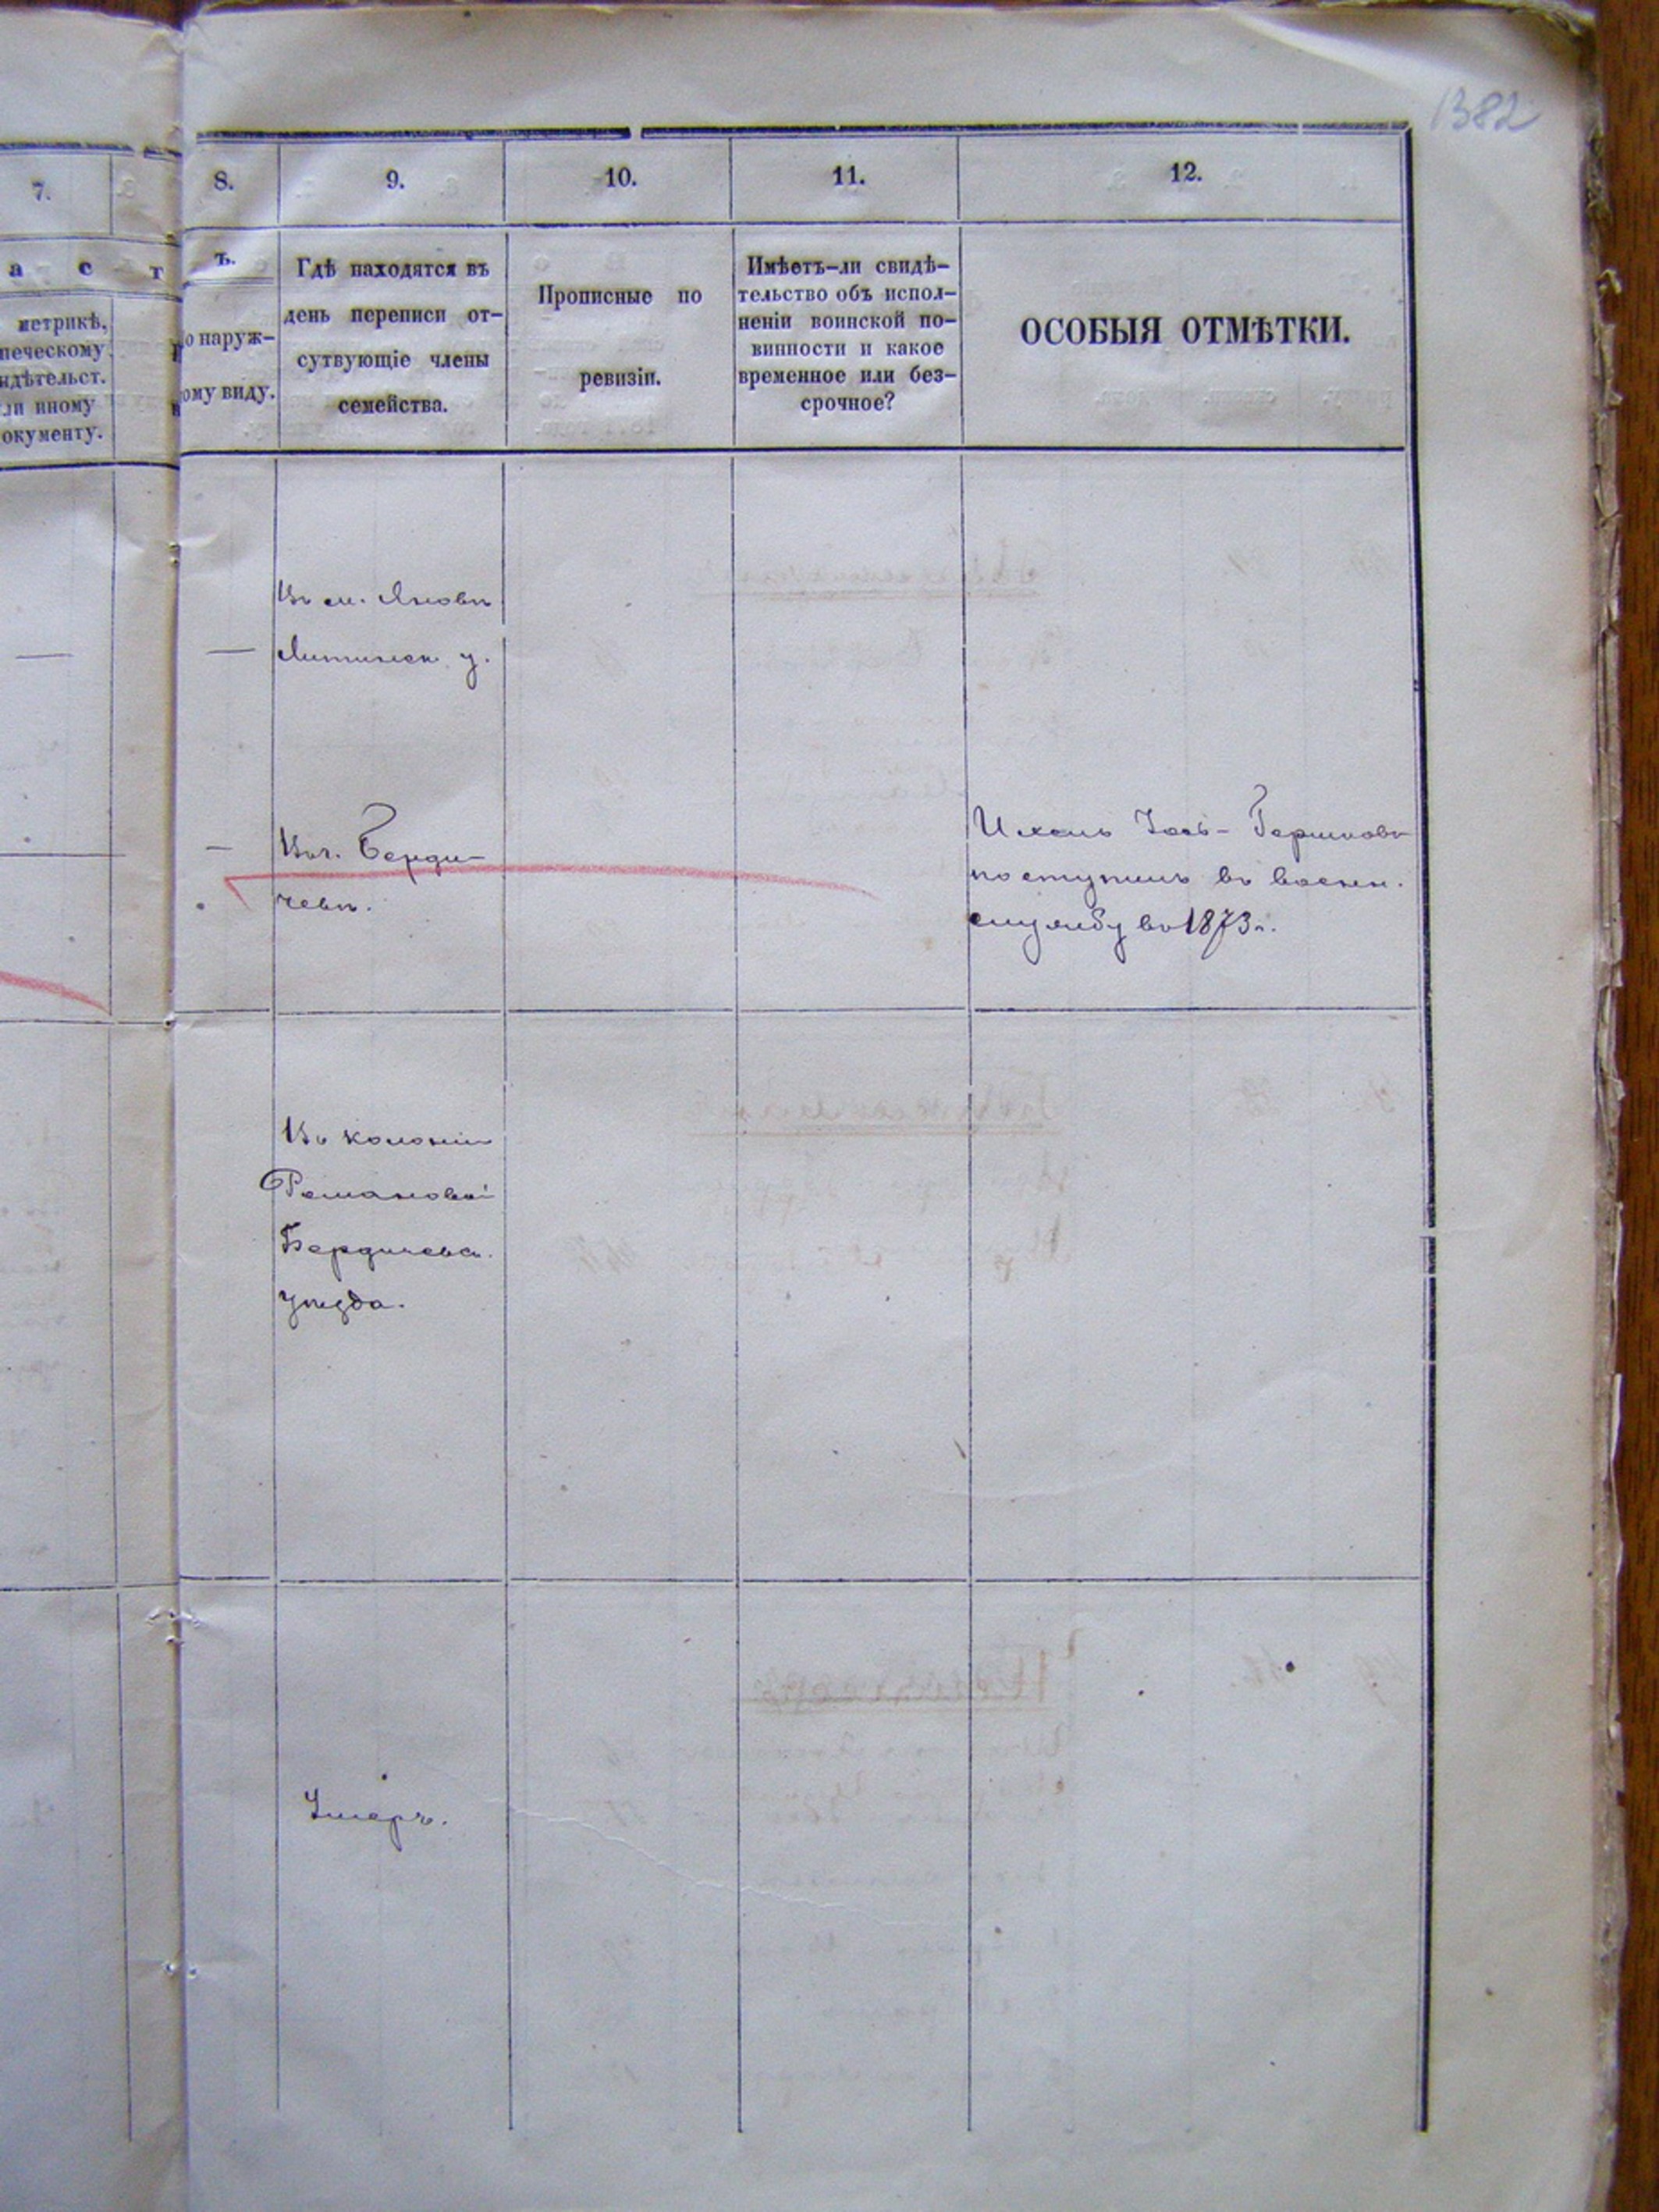 1382
7.
8.
9.
10.
11.
12.
а с т
ъ.
метрикѣ,
окументу.
ли иному
о наруж-
ому виду.
Гдѣ находятся въ
день переписи от-
сутвующіе члены
семейства.
Прописные по
ревизіи.
Имѣетъ-ли свидѣ-
тельство объ испол-
неніи воинской по-
винности и какое
временное или без-
срочное?
ОСОБЫЯ ОТМѢТКИ.
Въ м. Яновѣ
Литинск. у.
—
—
—
Въ г. Берди-
чевѣ.
Ихель Іось-Гершковъ
поступилъ въ воен.
службу въ 1873 г.
Въ колоніи
Романовкѣ
Бердичевск.
уѣзда.
Умеръ.